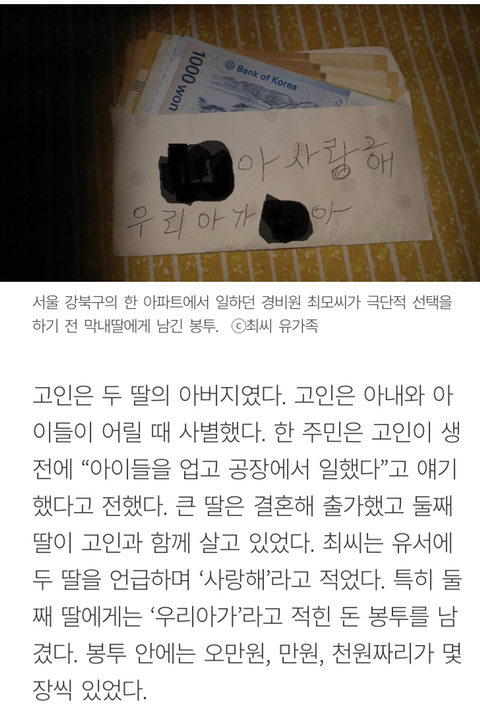 1000 won
Bank of Korea
아 사랑해
우리아가 아
서울 강북구의 한 아파트에서 일하던 경비원 최모씨가 극단적 선택을
하기 전 막내딸에게 남긴 봉투. ⓒ최씨 유가족
고인은 두 딸의 아버지였다. 고인은 아내와 아
이들이 어릴 때 사별했다. 한 주민은 고인이 생
전에 “아이들을 업고 공장에서 일했다”고 얘기
했다고 전했다. 큰 딸은 결혼해 출가했고 둘째
딸이 고인과 함께 살고 있었다. 최씨는 유서에
두 딸을 언급하며 ‘사랑해’라고 적었다. 특히 둘
째 딸에게는 ‘우리아가’라고 적힌 돈 봉투를 남
겼다. 봉투 안에는 오만원, 만원, 천원짜리가 몇
장씩 있었다.